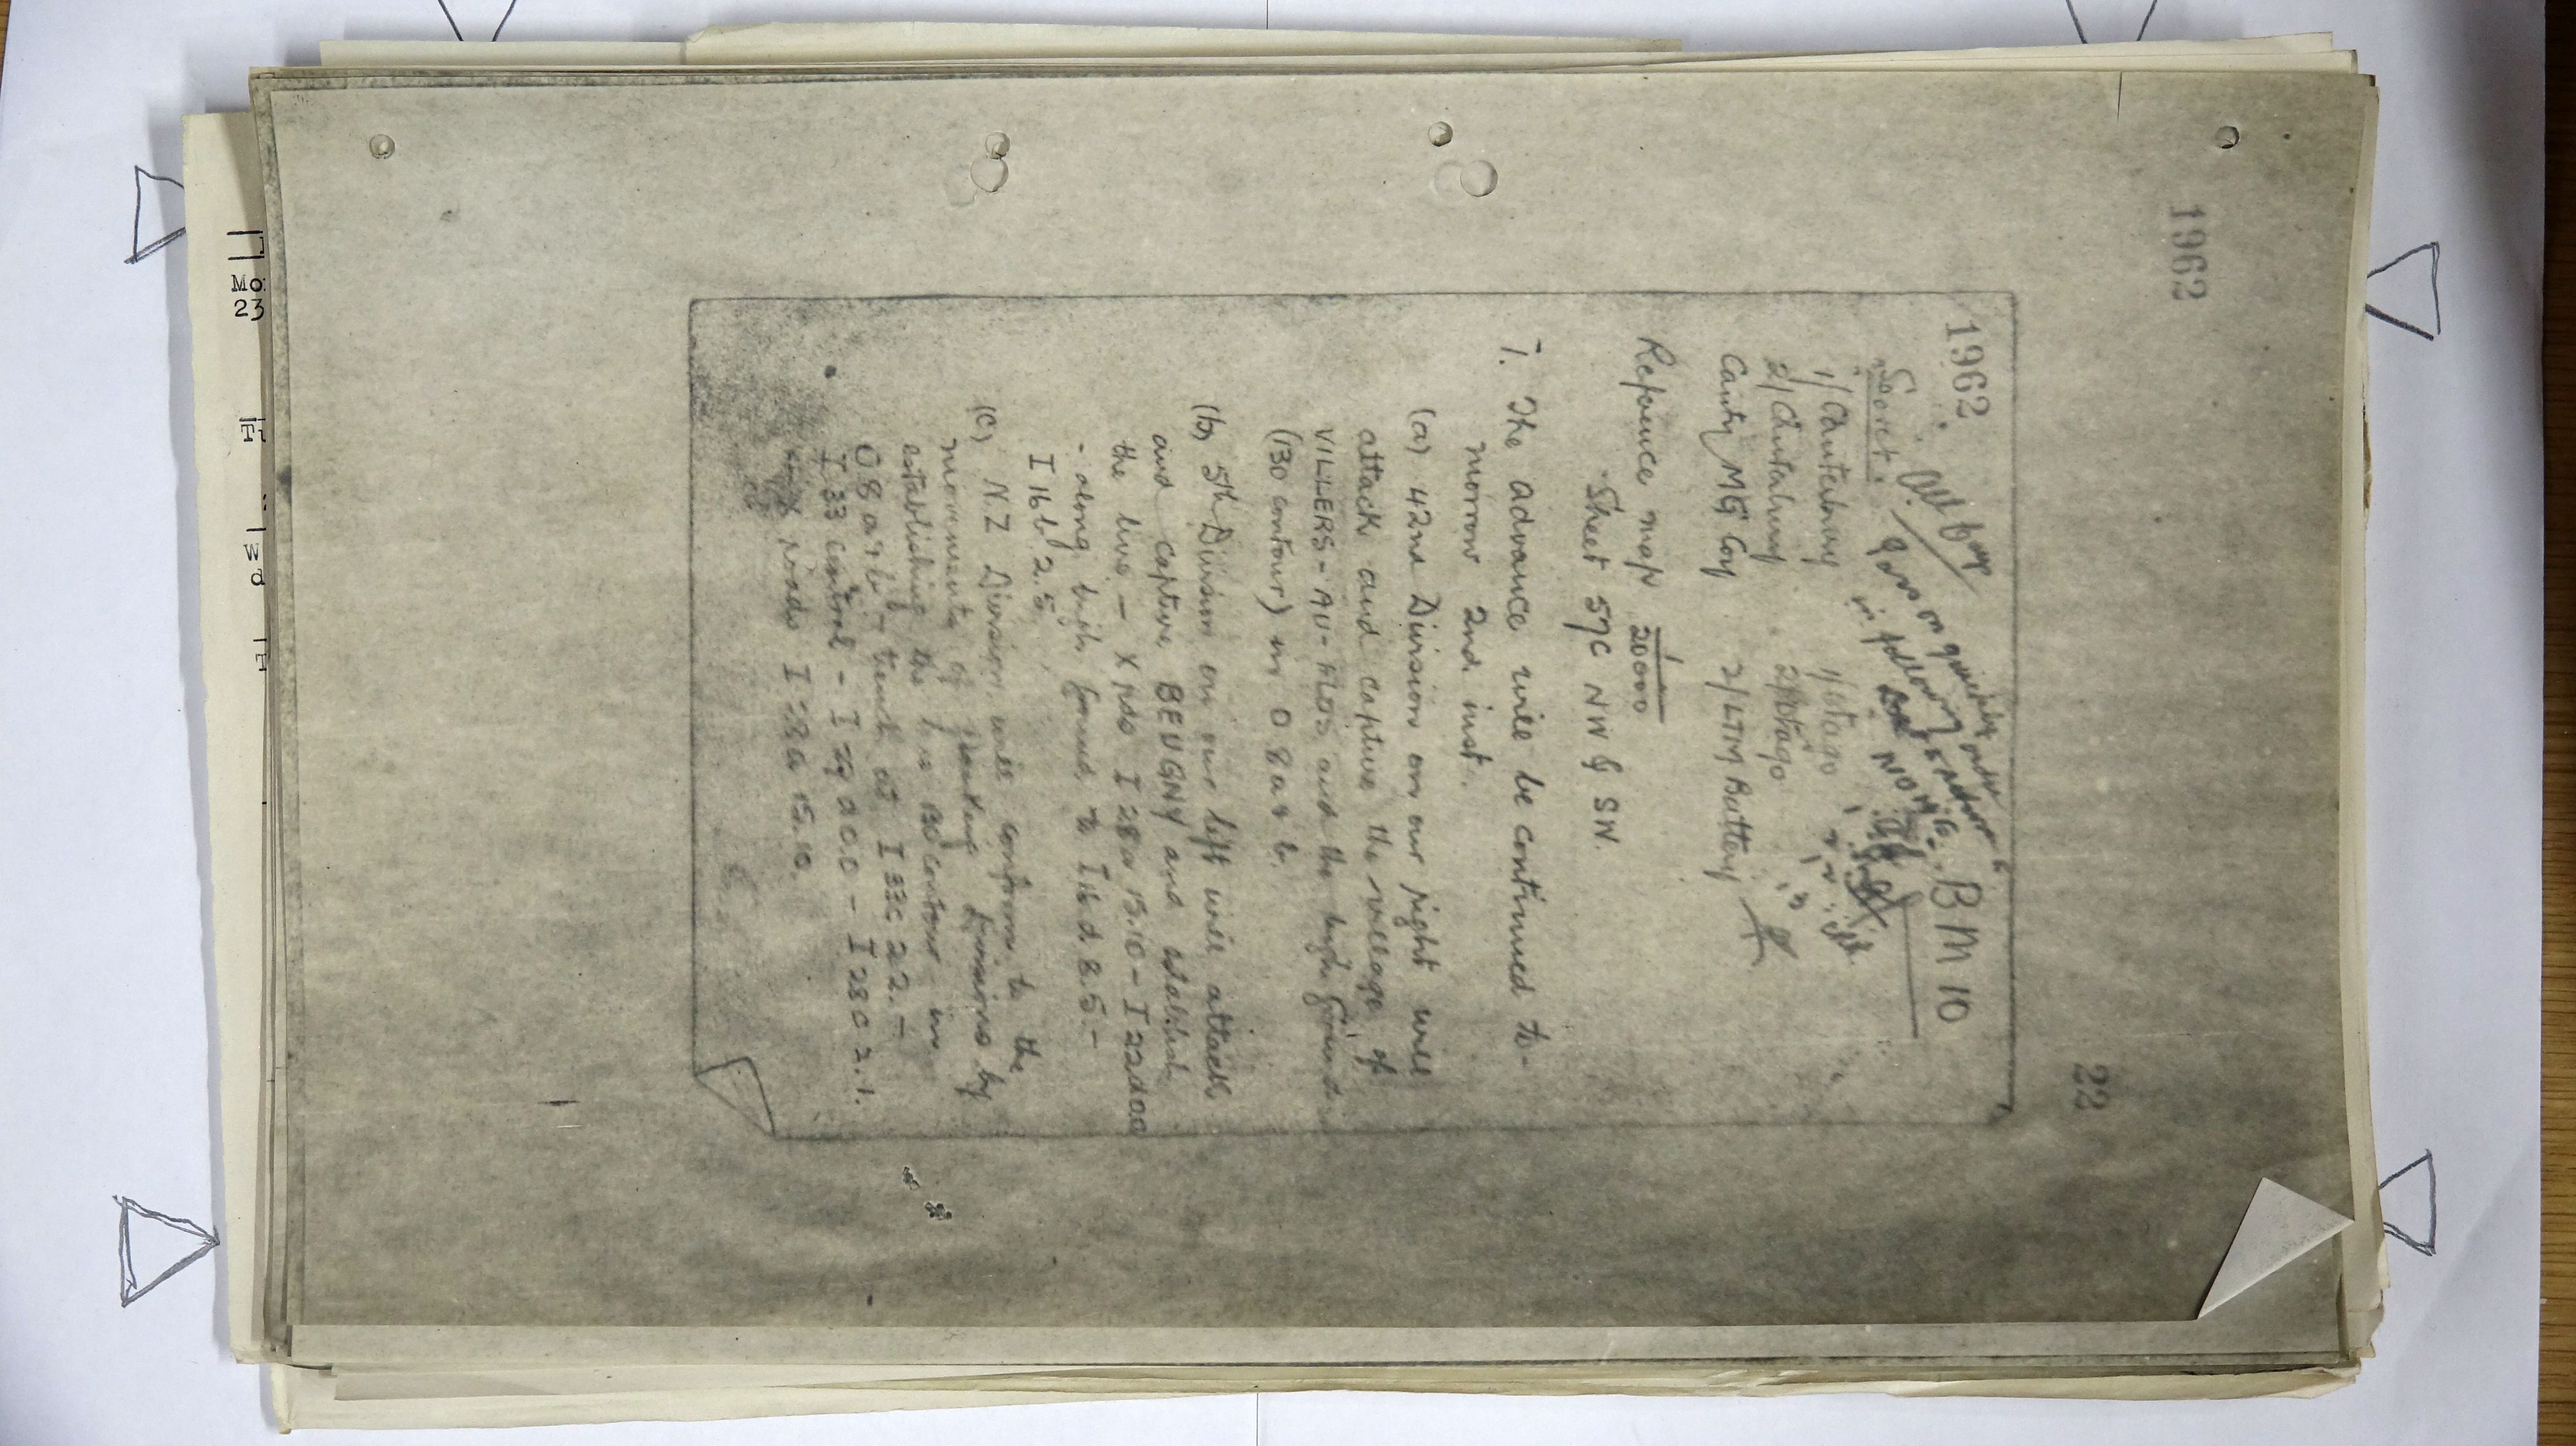 1962
22
1962
BM 10
Secret.
All Coys
Pass on quickly
in following order
1/Canterbury 1/Otago
2/Canterbury 2/Otago
Canty MG Coy 2/LTM Battery
Reference map 1/20000
Sheet 57C NW & SW.
1. The advance will be continued to-
morrow 2nd inst.
(a) 42nd Division on our right will
attack and capture the village of
VILLERS-AU-FLOS and the high ground
(130 contour) in O 8 a & b.
(b) 5th Division on our left will attack
and capture BEUGNY and establish
the line - X Rds I 28 a 15.10 - I 22 d 00
- along high ground to I 16 d 8.5 -
I 16 b 2.5
(c) N.Z Division will conform to the
movements of flanking Divisions by
establishing the line 130 contour in
O 8 a & b - trench at I 33 c 22. -
I 33 central - I 29 a 0.0 - I 28 c 2.1.
X roads I 28 a 15.10.
Mo
23
W
d